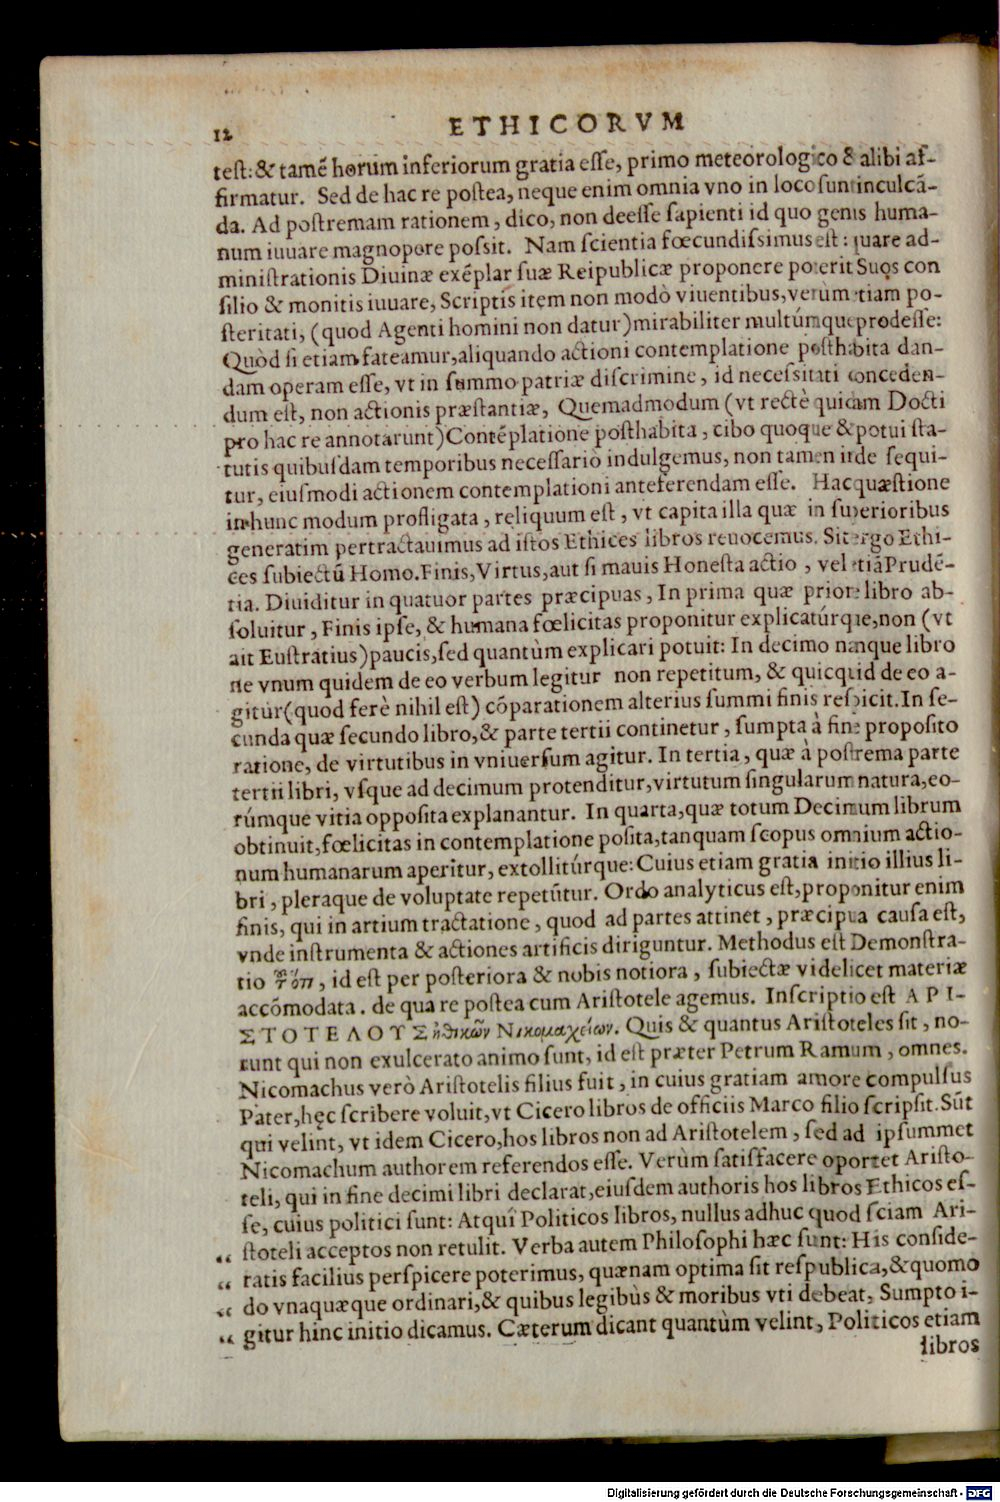 12 ETHICORVM
teſt: & tamẽ horum inferiorum gratia eſſe, primo meteorologico & alibi af-
firmatur. Sed de hac re poſtea, neque enim omnia vno in loco ſunt inculcã-
da. Ad poſtremam rationem, dico, non deeſſe ſapienti id quo genus huma-
num iuuare magnopere poſsit. Nam ſcientia fœcundiſsimus eſt: quare ad-
miniſtrationis Diuinæ exẽplar ſuæ Reipublicæ proponere poterit Suos con
ſilio & monitis iuuare, Scriptis item non modò viuentibus, verùm etiam po-
ſteritati, (quod Agenti homini non datur) mirabiliter multúmque prodeſſe:
Quòd ſi etiam fateamur, aliquando actioni contemplatione poſthabita dan-
dam operam eſſe, vt in ſummo patriæ diſcrimine, id neceſsitati conceden-
dum eſt, non actionis præſtantiæ, Quemadmodum (vt rectè quidam Docti
pro hac re annotarunt) Contẽplatione poſthabita, cibo quoque & potui ſta-
tutis quibuſdam temporibus neceſſariò indulgemus, non tamen inde ſequi-
tur, eiuſmodi actionem contemplationi anteferendam eſſe. Hac quæſtione
in hunc modum profligata, reliquum eſt, vt capita illa quæ in ſuperioribus
generatim pertractauimus ad iſtos Ethices libros reuocemus. Sit ergo Ethi-
ces ſubiectũ Homo. Finis, Virtus, aut ſi mauis Honeſta actio, vel etiã Prudẽ-
tia. Diuiditur in quatuor partes præcipuas, In prima quæ priore libro ab-
ſoluitur, Finis ipſe, & humana fœlicitas proponitur explicatúrque, non (vt
ait Euſtratius) paucis, ſed quantùm explicari potuit: In decimo nanque libro
ne vnum quidem de eo verbum legitur non repetitum, & quicquid de eo a-
gitur (quod ferè nihil eſt) cõparationem alterius ſummi finis reſpicit. In ſe-
cunda quæ ſecundo libro, & parte tertii continetur, ſumpta à fine propoſito
ratione, de virtutibus in vniuerſum agitur. In tertia, quæ à poſtrema parte
tertii libri, vſque ad decimum protenditur, virtutum ſingularum natura, eo-
rúmque vitia oppoſita explanantur. In quarta, quæ totum Decimum librum
obtinuit, fœlicitas in contemplatione poſita, tanquam ſcopus omnium actio-
num humanarum aperitur, extollitúrque: Cuius etiam gratia initio illius li-
bri, pleraque de voluptate repetũtur. Ordo analyticus eſt, proponitur enim
finis, qui in artium tractatione, quod ad partes attinet, præcipua cauſa eſt,
vnde inſtrumenta & actiones artificis diriguntur. Methodus eſt Demonſtra-
tio τȣ̃ ὅτι, id eſt per poſteriora & nobis notiora, ſubiectæ videlicet materiæ
accõmodata. de qua re poſtea cum Ariſtotele agemus. Inſcriptio eſt ΑΡΙ-
ΣΤΟΤΕΛΟΥΣ ἠθικῶν Νικομαχείων. Quis & quantus Ariſtoteles ſit, no-
runt qui non exulcerato animo ſunt, id eſt præter Petrum Ramum, omnes.
Nicomachus verò Ariſtotelis filius fuit, in cuius gratiam amore compulſus
Pater, hęc ſcribere voluit, vt Cicero libros de officiis Marco filio ſcripſit. Sũt
qui velint, vt idem Cicero, hos libros non ad Ariſtotelem, ſed ad ipſummet
Nicomachum authorem referendos eſſe. Verùm ſatisfacere oportet Ariſto-
teli, qui in fine decimi libri declarat, eiuſdem authoris hos libros Ethicos eſ-
ſe, cuius politici ſunt: Atqui Politicos libros, nullus adhuc quod ſciam Ari-
“ ſtoteli acceptos non retulit. Verba autem Philoſophi hæc ſunt: His conſide-
“ ratis facilius perſpicere poterimus, quænam optima ſit reſpublica, & quomo
“ do vnaquæque ordinari, & quibus legibùs & moribus vti debeat, Sumpto i-
“ gitur hinc initio dicamus. Cæterum dicant quantùm velint, Politicos etiam
libros
Digitalisierung gefördert durch die Deutsche Forschungsgemeinschaft - DFG